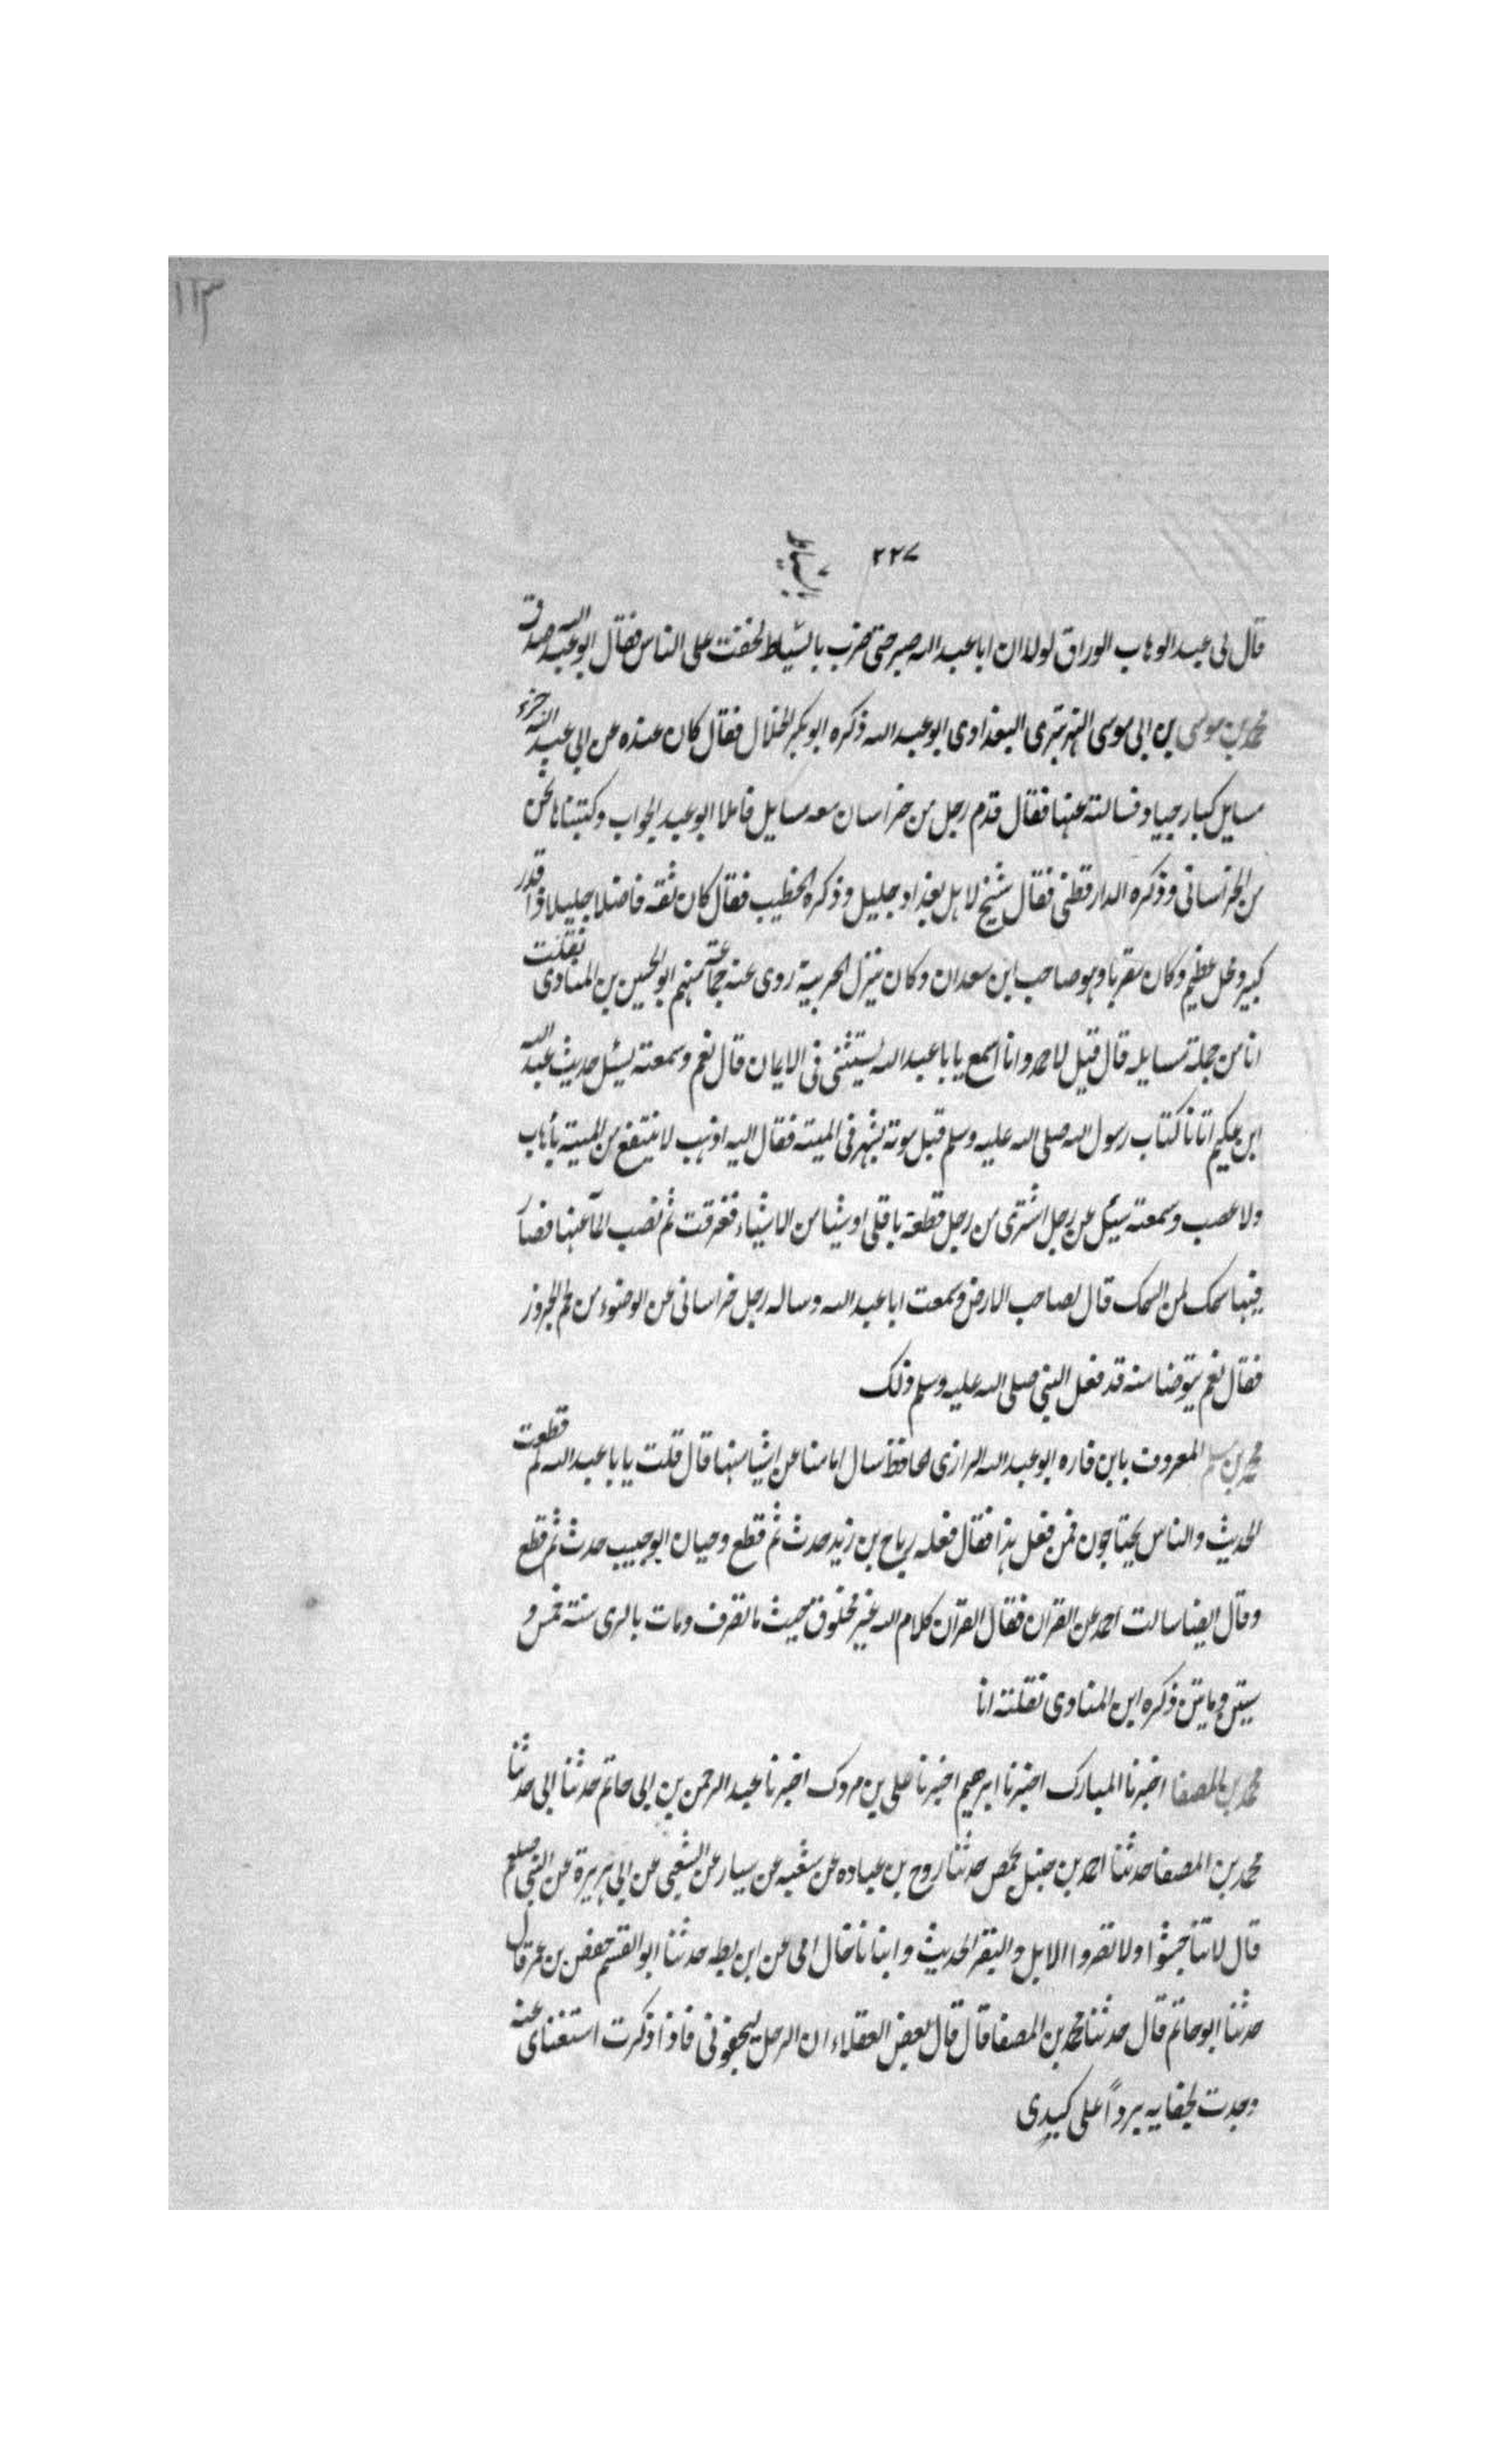 ١١٣
٢٢٧
قال لى عبد الوهاب الوراق لولا ان ابا عبد الله صبر حتى ضرب بالسياط لخفت على الناس فقال ابو عبد الله صدق
محمد بن موسى بن ابى موسى النهرتيرى البغدادى ابو عبد الله ذكره ابو بكر الخلال فقال كان عنده عن ابى عبد الله جزء
مسايل كبار جياد فسالته عنها فقال قدم رجل من خراسان معه مسايل فاملا ابو عبد الجواب وكتبناها نحن
من الخراسانى وذكره الدارقطنى فقال شيخ لاهل بغداد جليل وذكره الخطيب فقال كان ثقه فاضلا جليلا ذا قدر
كبير ومحل عظيم وكان مقريا وهو صاحب ابن سعدان وكان ينزل الحربية روى عنه جماعة منهم ابو الحسين بن المنادى نقلت
انا من جملة مسايله قال قيل لاحمد وانا اسمع يابا عبد الله يستثنى فى الايمان قال نعم وسمعته يسئل حديث عبد الله
ابن عكيم اتانا كتاب رسول الله صلى الله عليه وسلم قبل موته بشهر فى الميتة فقال اليه اذهب لا ينتفع من الميتة باهاب
ولا عصب وسمعته سيئل عن رجل اشترى من رجل قطعة باقلى او شيئا من الاشياء فغرقت ثم نضب الماء عنها فصار
فيها سمك لمن السمك قال لصاحب الارض وسمعت ابا عبد الله وساله رجل خراسانى عن الوضوء من لحم الجزور
فقال نعم يتوضا منه قد فعل النبى صلى الله عليه وسلم ذلك
محمد بن مسلم المعروف بابن فاره ابو عبد الله الرازى الحافظ سال امامنا عن اشيا منها قال قلت يابا عبد الله لم قطعت
الحديث والناس يحتاجون فمن فعل هذا فقال فعله رباح بن زيد حدث ثم قطع وحيان ابو حبيب حدث ثم قطع
وقال ايضا سالت احمد عن القران فقال القرآن كلام الله غير مخلوق بحيث ما تصرف ومات بالرى سنة خمس و
ستين وماتين ذكره ابن المنادى نقلته انا
محمد بن المصفا اخبرنا المبارك اخبرنا ابرهيم اخبرنا على بن مروك اخبرنا عبد الرحمن بن ابى حاتم حدثنا ابى حدثنا
محمد بن المصفا حدثنا احمد بن حنبل بحمص حدثنا روح بن عباده عن شعبه عن سيار عن الشعبى عن ابى هريرة عن النبى صلعم
قال لا تناجشوا ولا تصروا الابل والبقر الحديث وانبانا خال امى عن ابن بطه حدثنا ابو القسم حفص بن عمر قال
حدثنا ابو حاتم قال حدثنا محمد بن المصفا قال قال بعض العقلاء ان الرجل ليجفونى فاذا ذكرت استغناى عنه
وجدت لجفايه برداً على كبدى